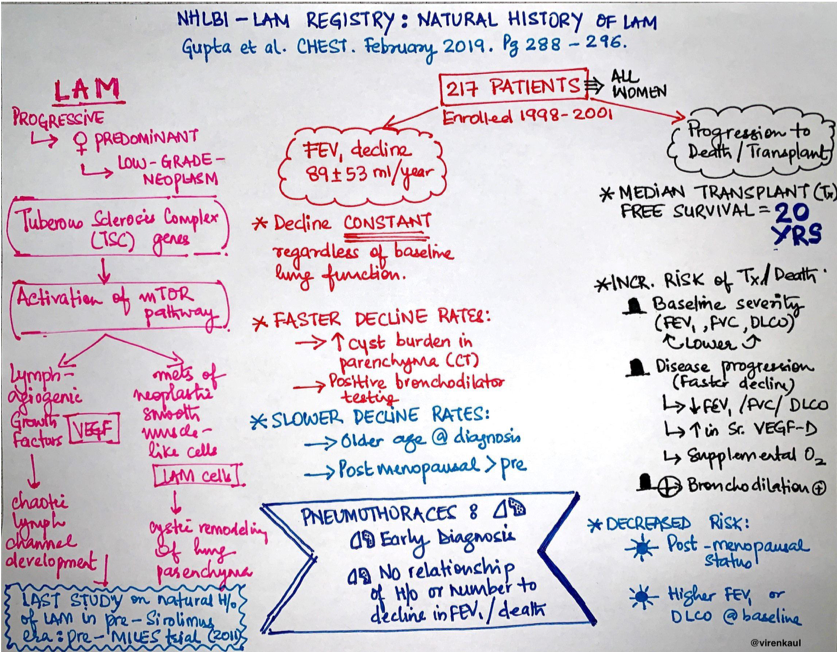 NHLBI - LAM REGISTRY: NATURAL HISTORY OF LAM
Gupta et al. CHEST. February 2019. Pg 288 - 296.
LAM
PROGRESSIVE
↳ ♀ PREDOMINANT
↳ LOW-GRADE-
NEOPLASM
Tuberous Sclerosis Complex
(TSC) genes
Activation of mTOR
pathway
Lymph-
agiogenic
Growth
Factors VEGF
chaotic
lymph
channel
development
mets of
neoplastic
smooth
muscle-
like cells
LAM cells
cystic remodeling
of lung
parenchyma
LAST STUDY on natural H/o
of LAM in pre-Sirolimus
era: pre-MILES trial (2011)
217 PATIENTS ⇛ ALL
WOMEN
Enrolled 1998-2001
FEV₁ decline
89±53 ml/year
* Decline CONSTANT
regardless of baseline
lung function.
* FASTER DECLINE RATES:
→ ↑ cyst burden in
parenchyma (CT)
→ Positive bronchodilator
testing
* SLOWER DECLINE RATES:
→ Older age @ diagnosis
→ Post menopausal > pre
PNEUMOTHORACES :
Early Diagnosis
No relationship
of H/o or number to
decline in FEV₁/death
Progression to
Death/Transplant
* MEDIAN TRANSPLANT (Tx)
FREE SURVIVAL = 20
YRS
* INCR. RISK of Tx/Death.
Baseline severity
(FEV₁, FVC, DLCO)
↑ Lower ↑
Disease progression
(Faster decline)
↳ ↓ FEV₁/FVC/DLCO
↳ ↑ in Sr. VEGF-D
↳ Supplemental O₂
⊕ Bronchodilation ⊕
* DECREASED RISK:
Post-menopausal
status
Higher FEV₁ or
DLCO @ baseline
@virenkaul